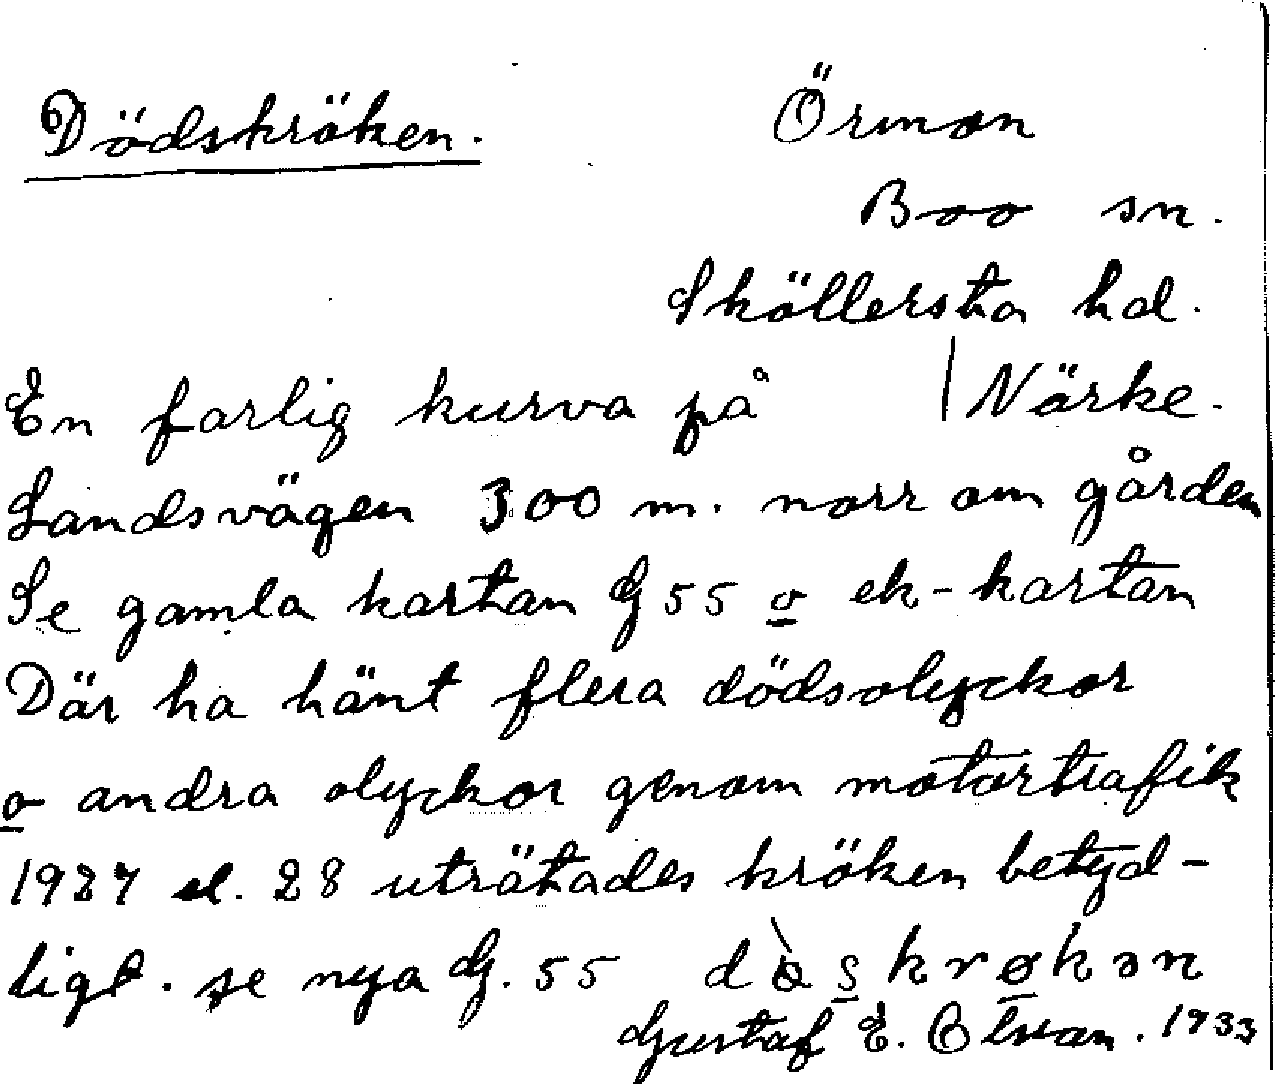 Dödskröken.
Örmon
Boo sn.
Sköllersta hd.
Närke.
En farlig kurva på
Landsvägen 300 m. norr om gården
Se gamla kartan G 55 o ek-kartan
Där ha hänt flera dödsolyckor
o andra olyckor genom motortrafik
1927 el. 28 uträtades kröken betyd-
ligt. se nya G. 55
Gustaf E. 1933